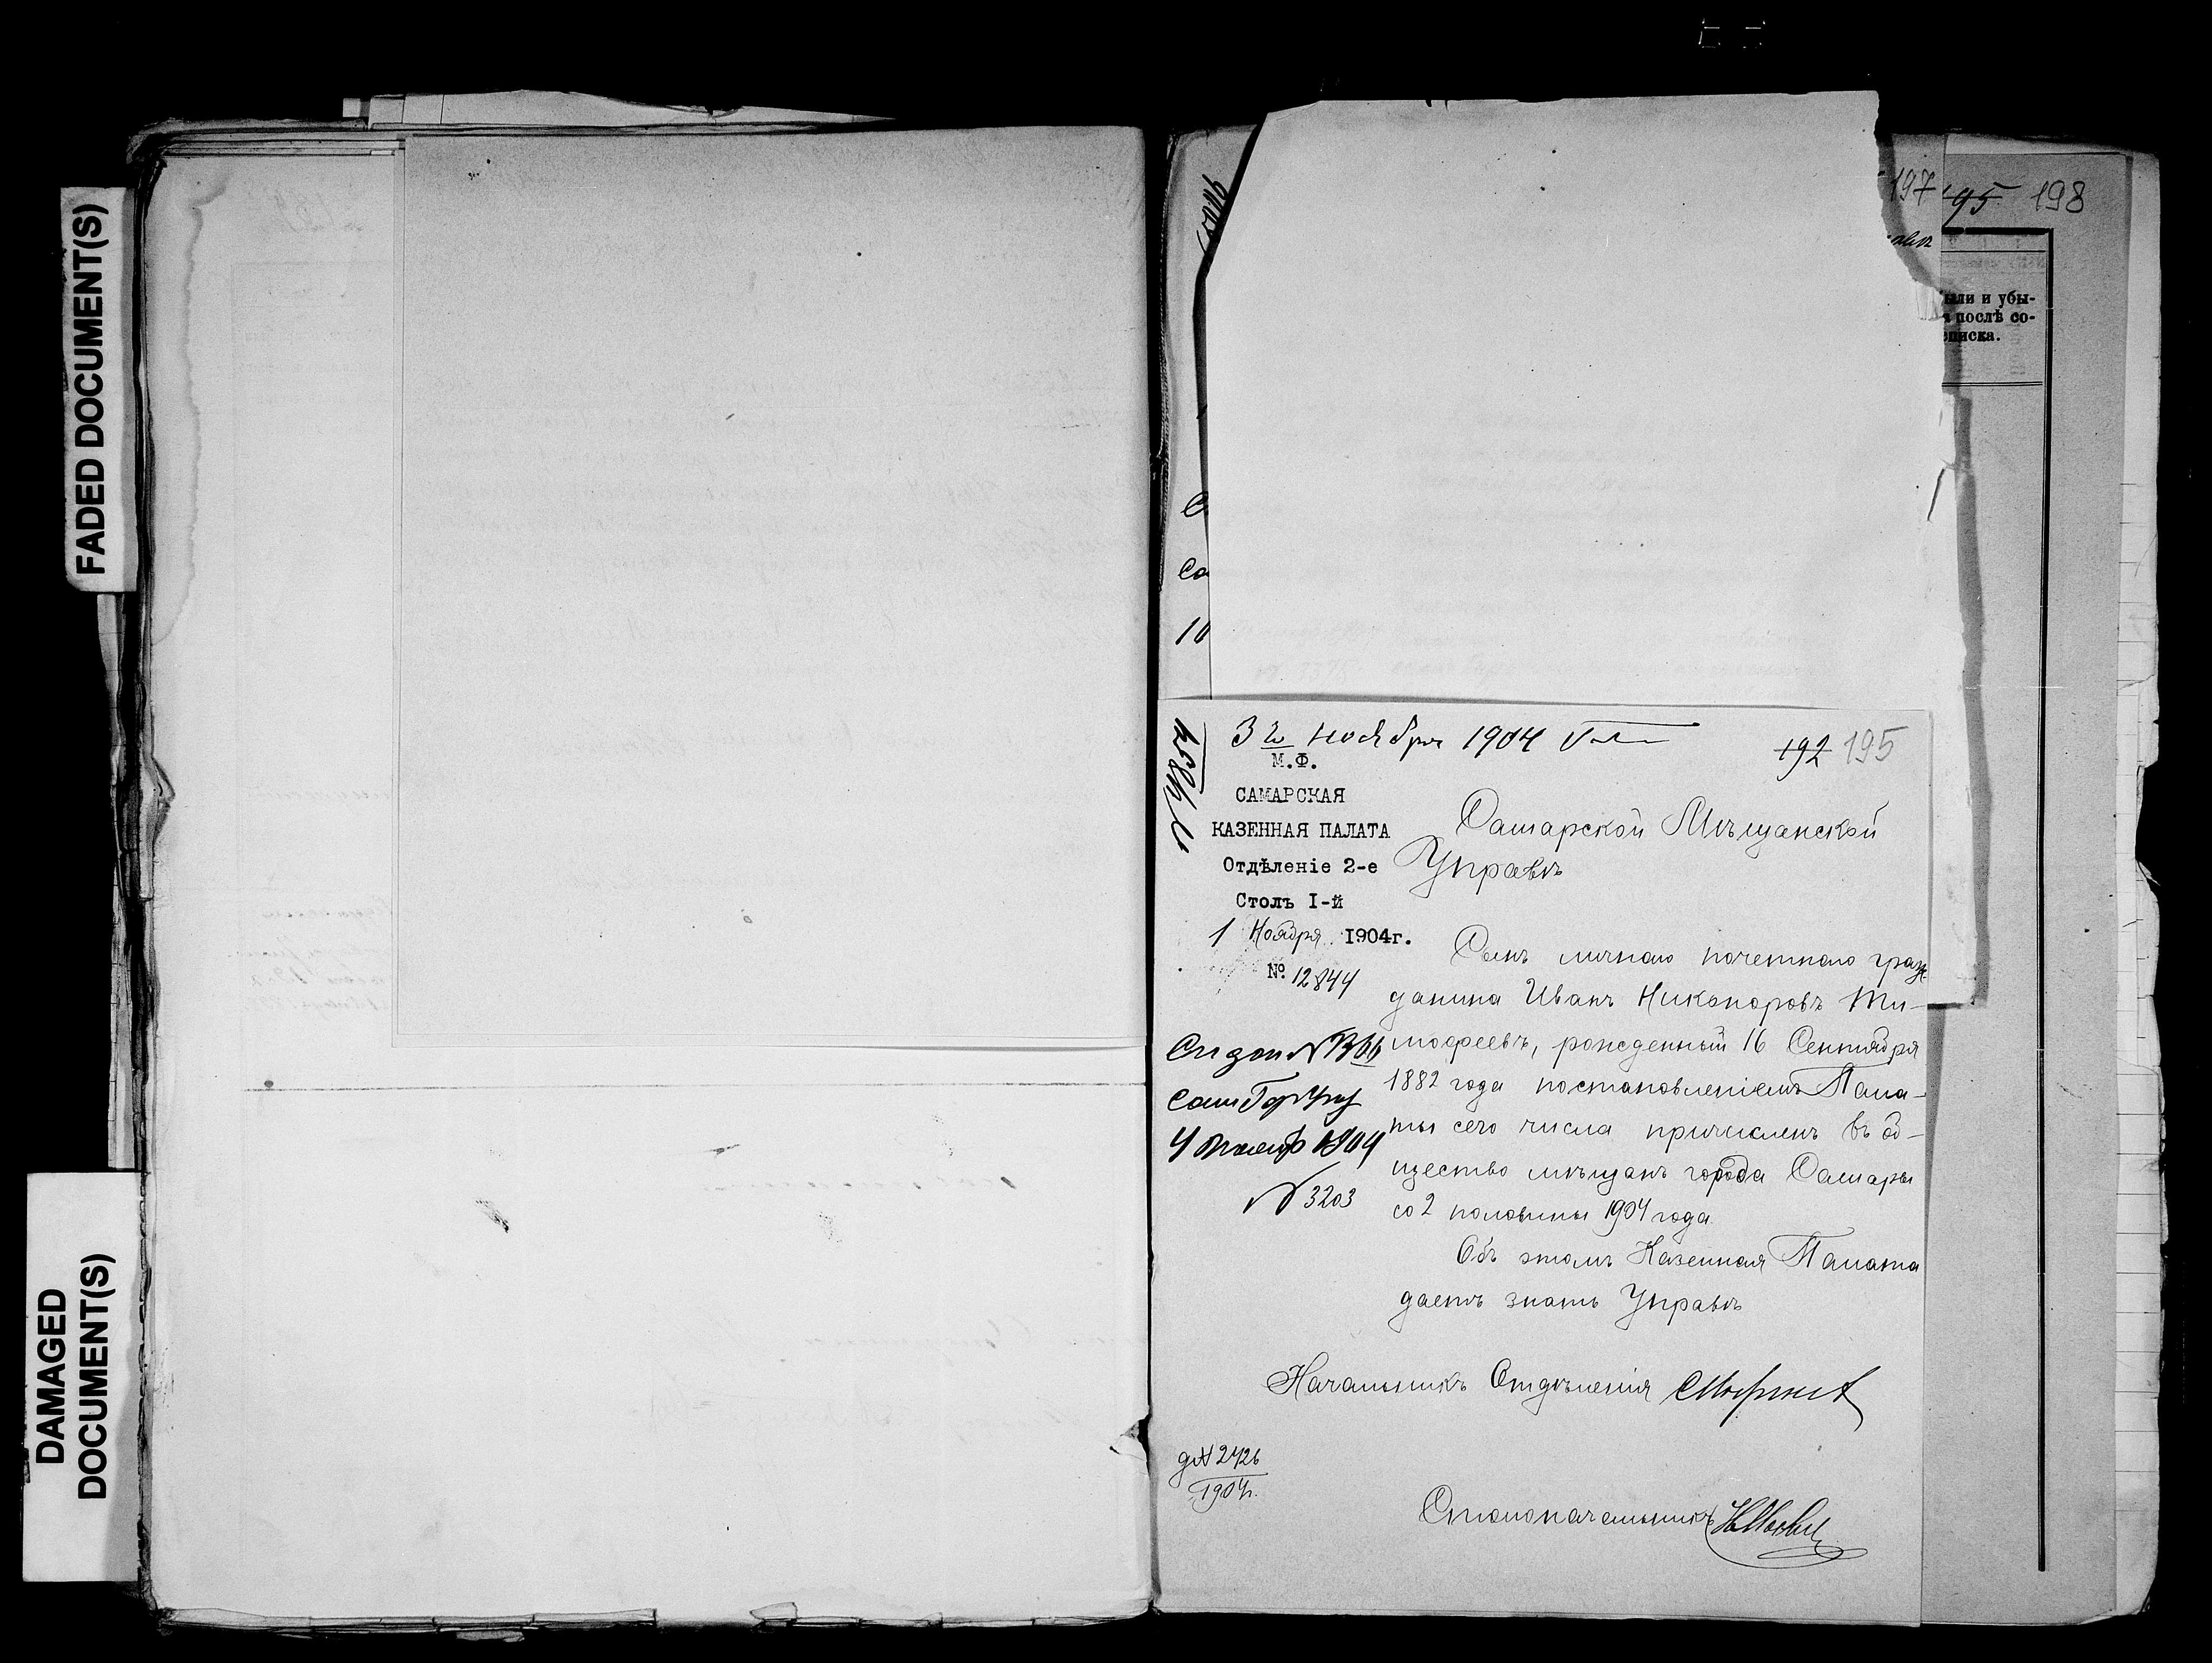 FADED DOCUMENT(S)
DAMAGED
DOCUMENT(S)
197
195 198
были и убы-
послѣ со-
списка.
С
Са
10
3 ноября 1904
192 195
№ 4854
М.Ф.
САМАРСКАЯ
КАЗЕННАЯ ПАЛАТА
Отдѣленіе 2-е
Столъ I-й
1 Ноября 1904г.
№ 12844
Самарской Мѣщанской
Управѣ
Сынъ личнаго почетнаго граж-
данина Иванъ Никаноровъ Ти-
мофеевъ, рожденный 16 Сентября
1882 года постановленіемъ Пала-
ты сего числа причисленъ въ об-
щество мѣщанъ города Самары
со 2 половины 1904 года.
Объ этомъ Казенная Палата
даетъ знать Управѣ
1904
№ 3203
Начальникъ Отдѣленія
д № 2426
1904г.
Столоначальникъ